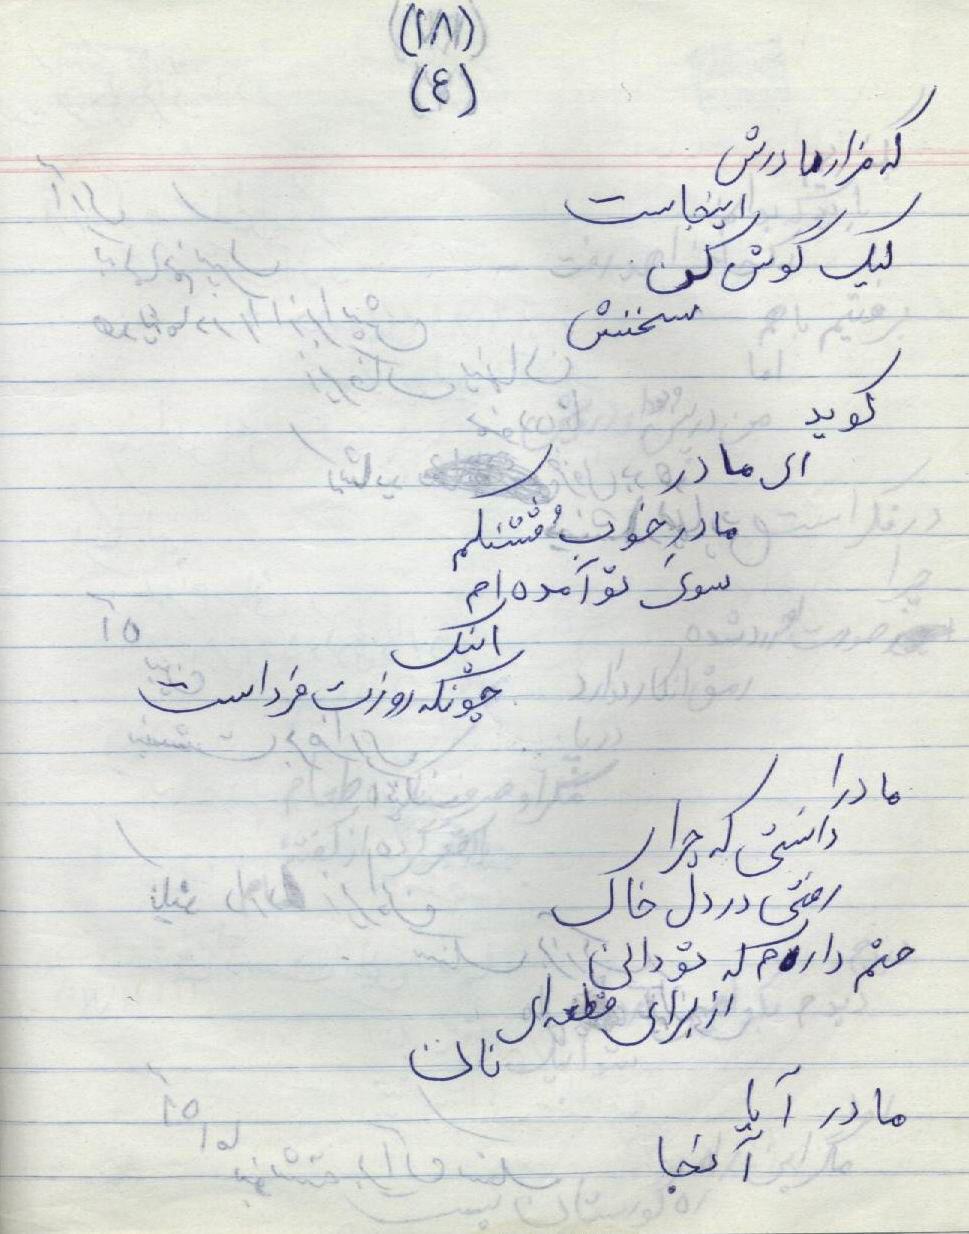 (۲۸)
(٤)
که مزار مادرش
اینجاست
لیک گوش کن
سخنش
گوید
ای مادر
مادرِ خوبِ قُشنگم
سوی تو آمده ام
اینک
چونکه روزت فرداست
مادرا
دانستی که چرا
رفتی در دل خاک
حتم دارم که تو دانی
از برای قطعه ای
نان
مادر آیا
آنجا